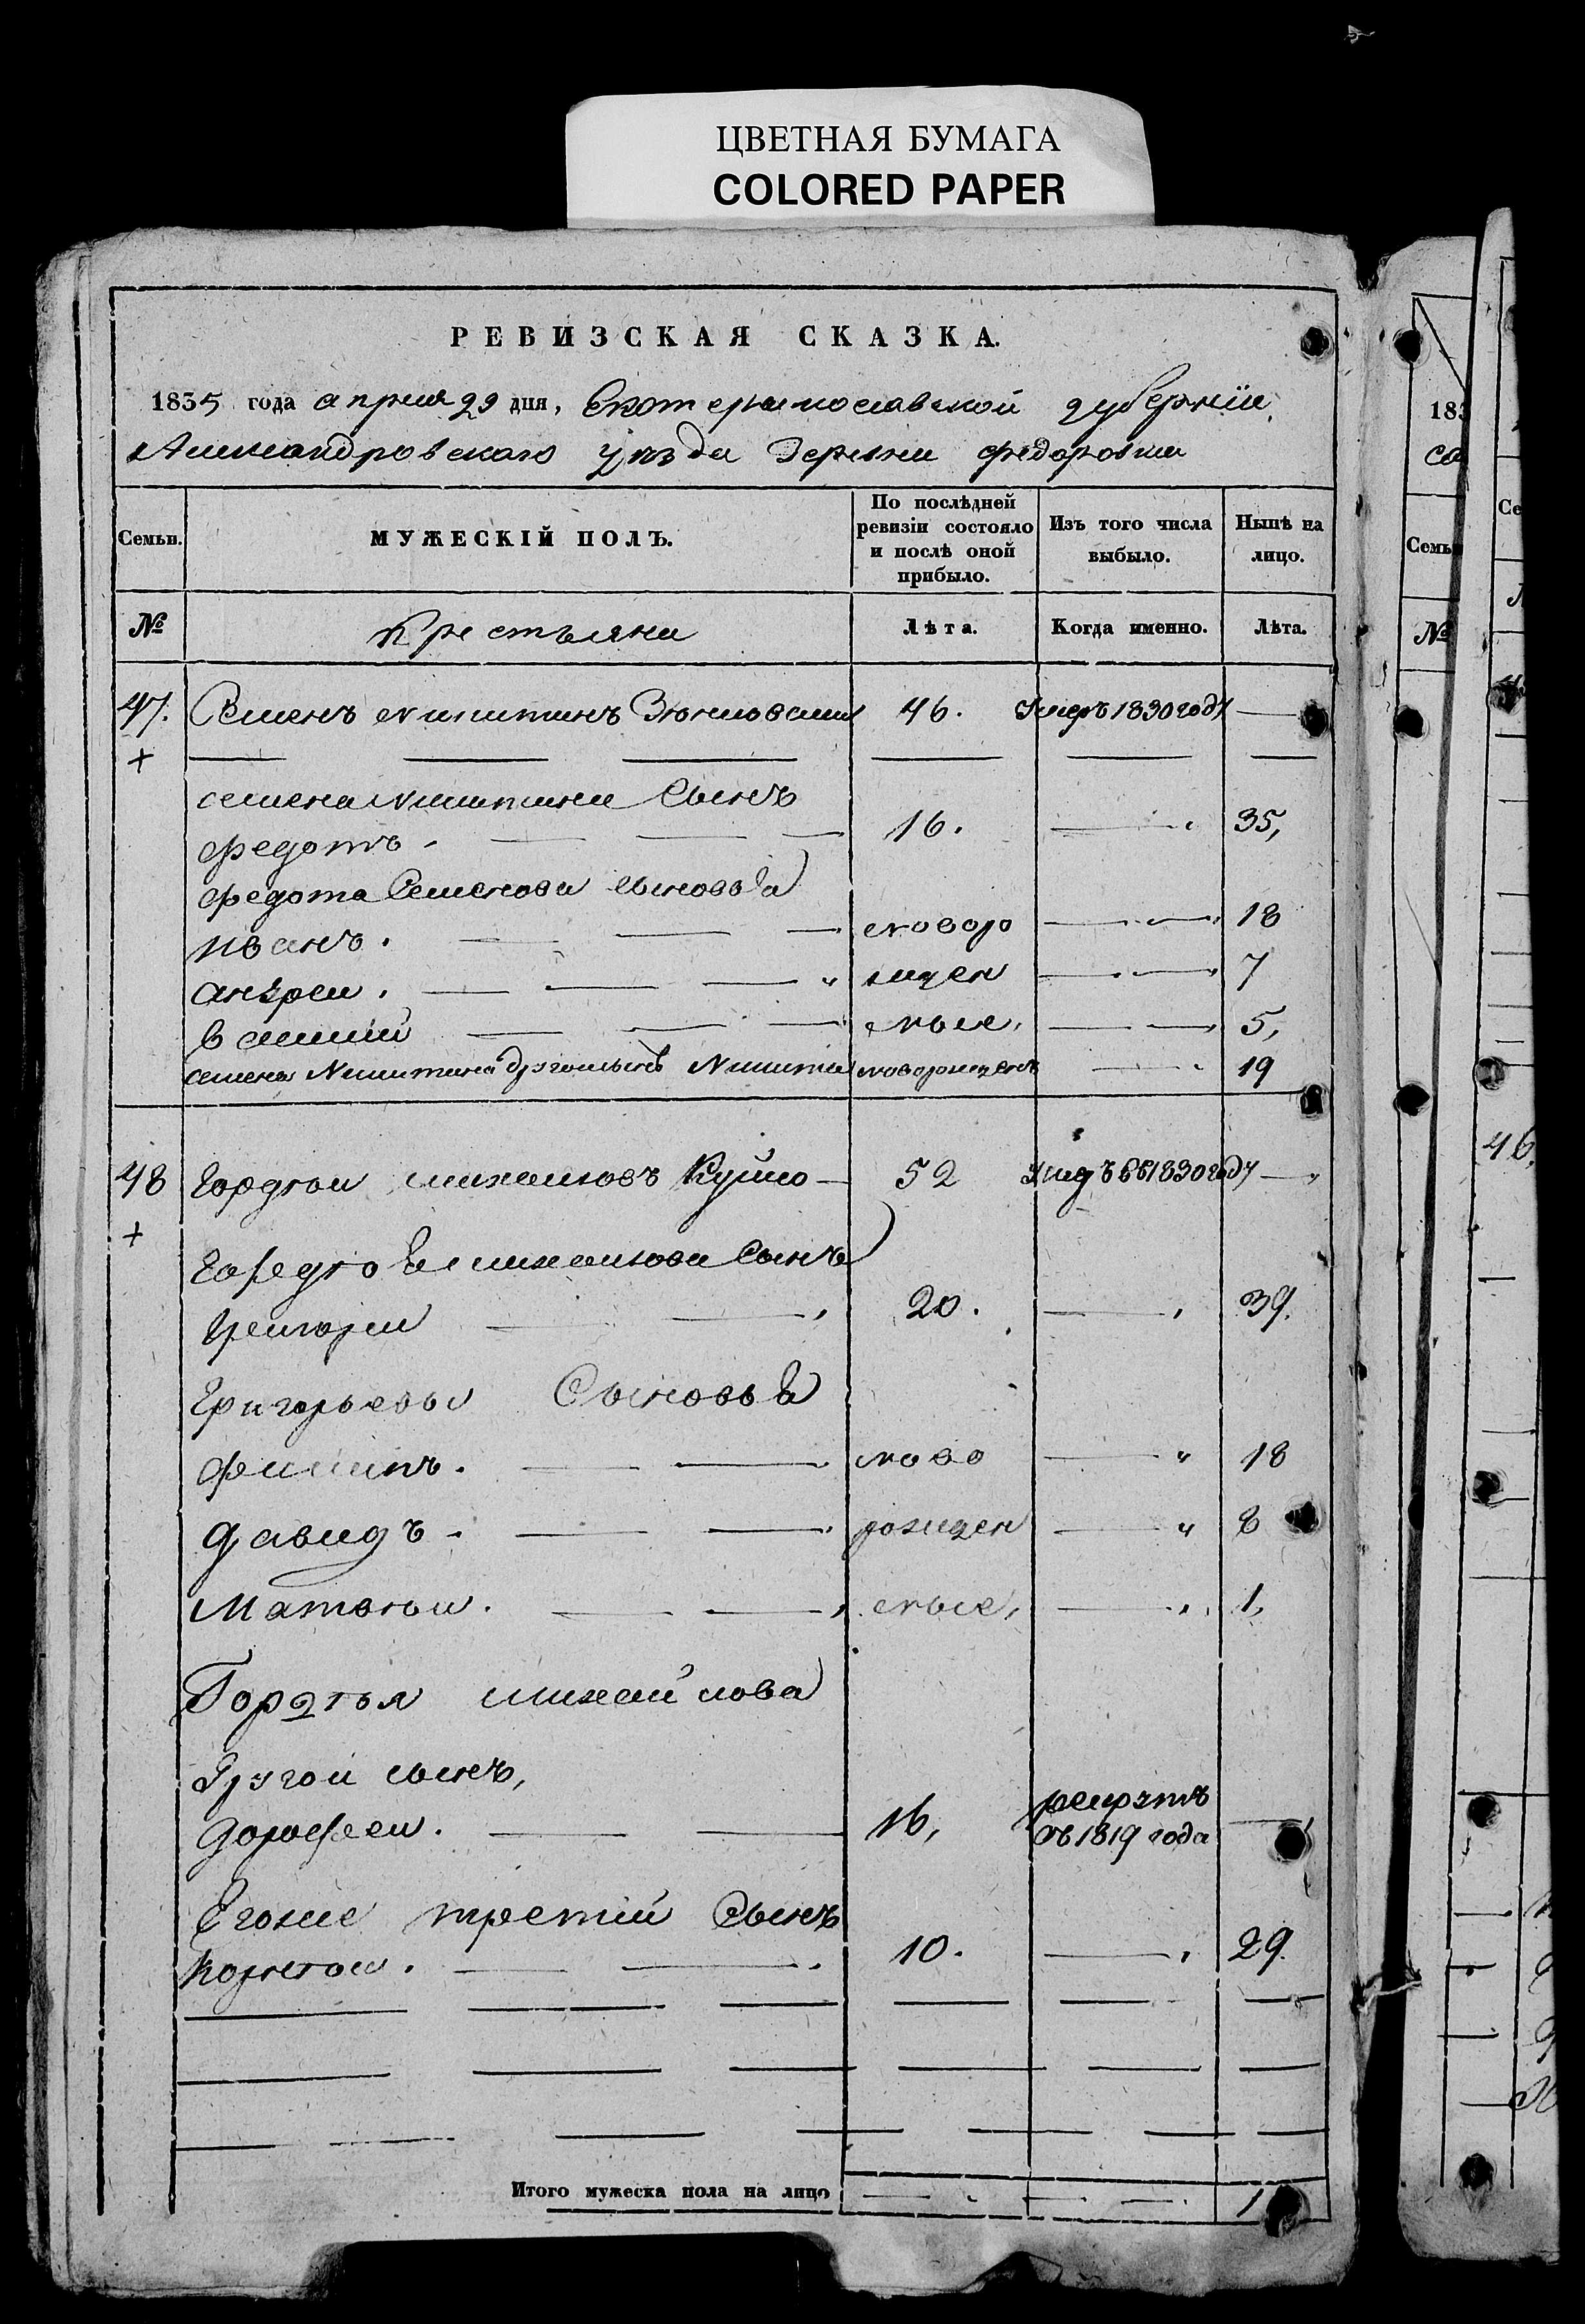 ЦВЕТНАЯ БУМАГА
COLORED PAPER
РЕВИЗСКАЯ СКАЗКА.
1835 года апреля 29 дня, Екатеринославской губернїи,
Александровскаго уѣзда деревни федоровки
Семьи. МУЖЕСКІЙ ПОЛЪ. По послѣдней ревизіи состояло и послѣ оной прибыло. Изъ того числа выбыло. Нынѣ на лицо.
№ Крестьяни Лѣта. Когда именно. Лѣта.
47. Семенъ никитинъ 46. Умеръ 1830 году
семена никитина Сынъ
федотъ. 16. 35,
федота Семенова сыновья
иванъ. новоро 18
андреи. жден 7
василий ные, 5,
семена Никитина другой сынъ Никита новорожденъ 19
48 Гордѣи михаиловъ 52 1830 году
Гордѣя михаилова Сынъ
Григореи 20. 39.
Григорьевы Сыновья
филипъ. ново 18
давидъ. рожден 8
Матвѣи. ные, 1,
Гордѣя михайлова
Другой сынъ,
дорофеи. 16, рекрутъ
съ 1819 года
Егоже третий Сынъ
Корнѣи. 10. 29.
Итого мужеска пола на лицо
183
Семьи
№
46.